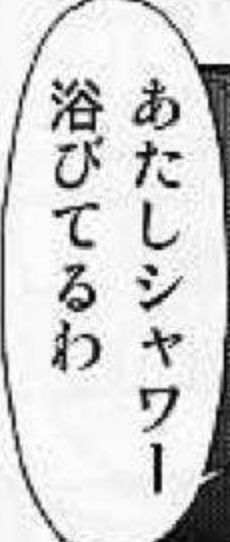 あたしシャワー
浴びてるわ